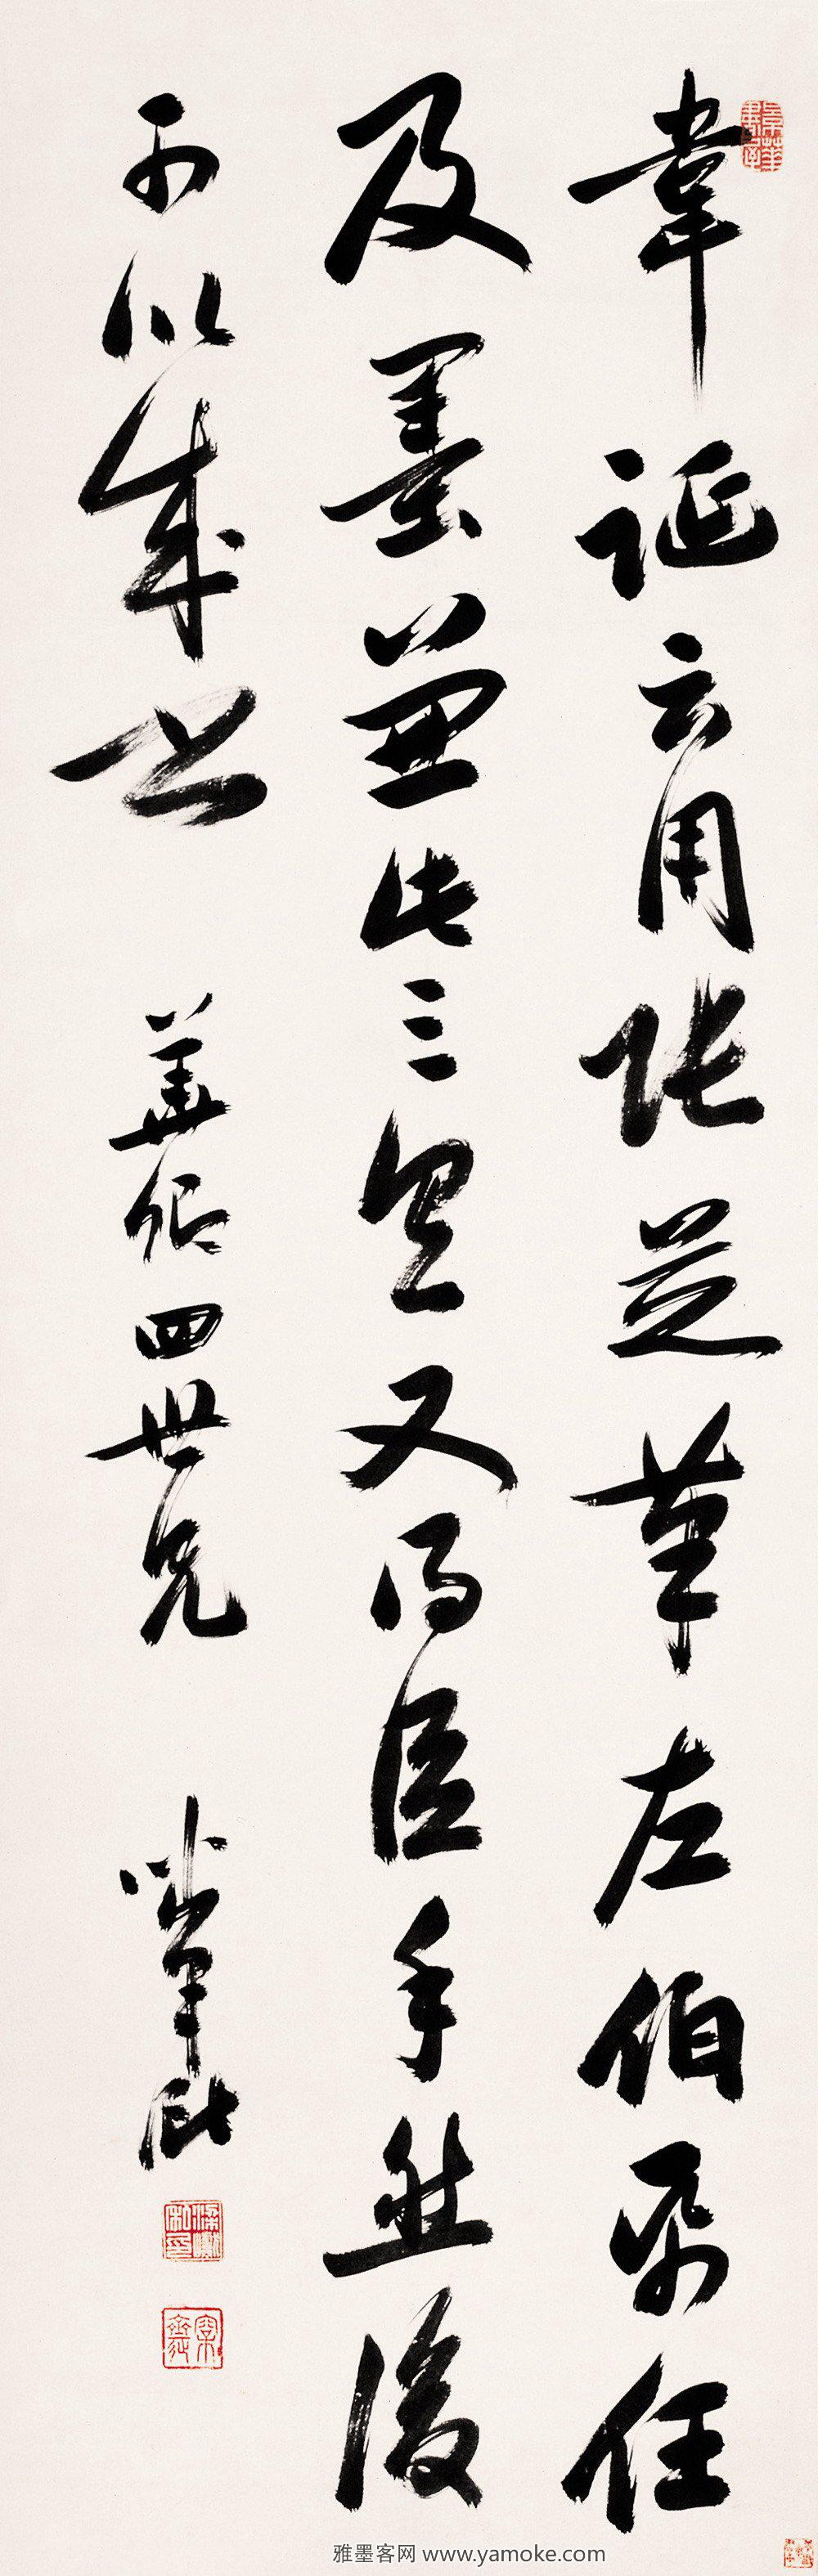 韋誕云用張芝筆左伯帋任
及墨兼此三具又得臣手然後
可以成 卿四世兄
雅墨客网 www.yamoke.com